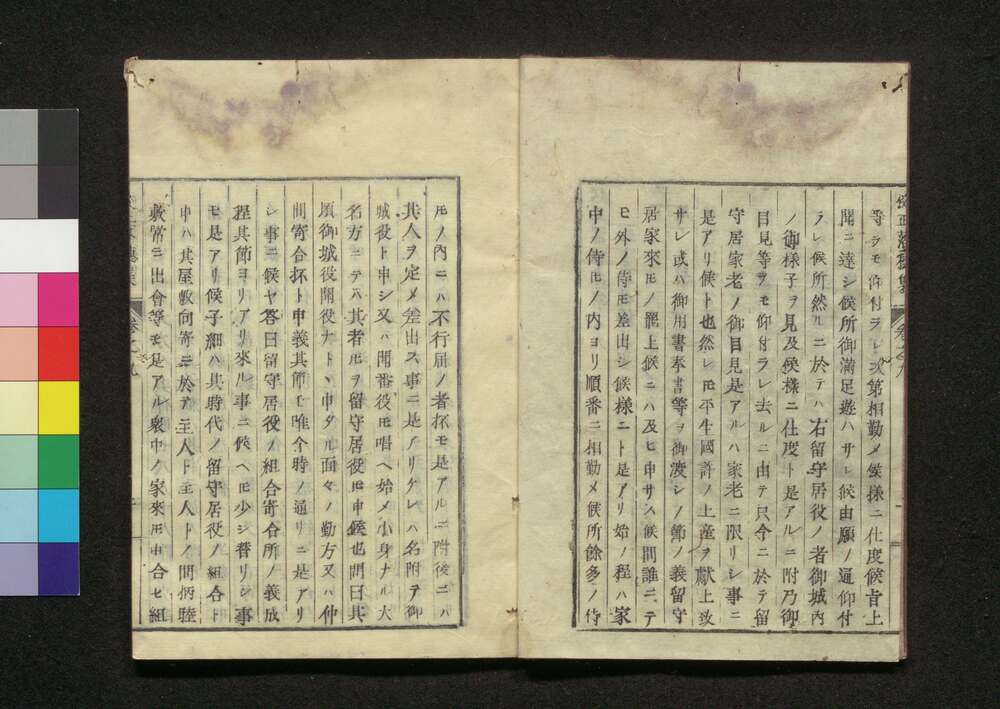 等ラモ仰付ラレ次第相勤メ候様ニ仕度候旨上
聞ニ達シ候所御満足遊ハサレ候由願ノ通仰付
ラレ候所然ルニ於テハ右留守居役ノ者御城内
ノ御様子ヲ見及候様ニ仕度ト是アルニ附乃御
目見等ヲモ仰付ラレ去ルニ由テ只今ニ於テ留
守居家老ノ御目見是アルハ家老ニ限リシ事ニ
是アリ候ト也然レ𪜈平生國許ノ土産ヲ献上致
サレ或ハ御用書奉書等ヲ御渡シノ節ノ義留守
居家來𪜈ノ罷上候ニハ及ヒ申サス候間誰ニテ
モ外ノ侍𪜈差出シ候様ニト是アリ始ノ程ハ家
中ノ侍𪜈ノ内ヨリ順番ニ相勤メ候所餘多ノ侍
𪜈ノ内ニハ不行届ノ者抔モ是アルニ附後ニハ
其人ヲ定メ差出ス事ニ是アリケレハ名附テ御
城役ト申シ又ハ聞番役𪜈唱ヘ始メ小身ナル大
名方ニテハ其者𪜈ヲ留守居役𪜈申候也問曰其
頃御城役聞役ナト丶申タル面々ノ勤方又ハ仲
間寄合抔ト申義其節モ唯今時ノ通リニ是アリ
シ事ニ候ヤ答曰留守居役ノ組合寄合所ノ義成
程其節ヨリアリ來ル事ニ候ヘ𪜈少シ替リシ事
モ是アリ候子細ハ其時代ノ留守居役ノ組合ト
申ハ其屋敷向寄ニ於テ主人ト主人トノ間柄睦
敷常ニ出會等モ是アル衆中ノ家來𪜈申合セ組